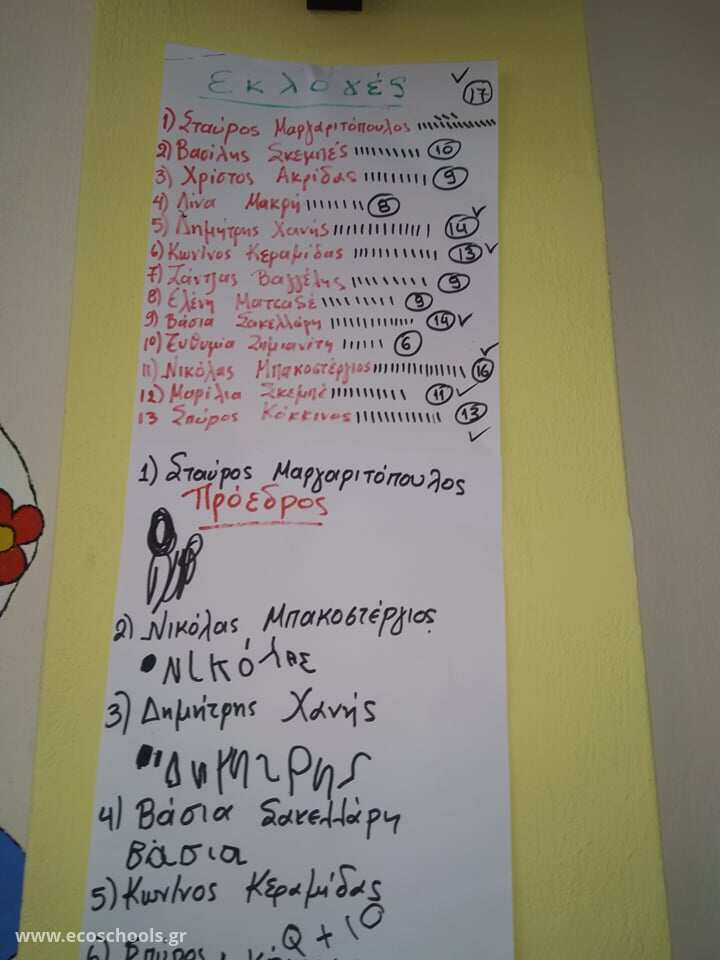 Εκλογές
1) Σταύρος Μαργαριτόπουλος 17
2) Βασίλης Σκεμπές 10
3) Χρίστος Ακρίδας 9
4) Λίνα Μακρή 8
5) Δημήτρης Χανής 14
6) Κων/νος Κεραμίδας 13
7) Ζάντζας Βαγγέλης 9
8) Ελένη 9
9) Βάσια Σακελλάρη 14
10) Ευθυμία 6
11) Νικόλας Μπακοστέργιος 16
12) Μαρίλια Σκεμπέ 11
13 Σπύρος Κόκκινος 13
1) Σταύρος Μαργαριτόπουλος
Πρόεδρος
2) Νικόλας Μπακοστέργιος
• Νικόλας
3) Δημήτρης Χανής
Δημητρης
4) Βάσια Σακελλάρη
Βάσια
5) Κων/νος Κεραμίδας
6) Σπύρος
www.ecoschools.gr